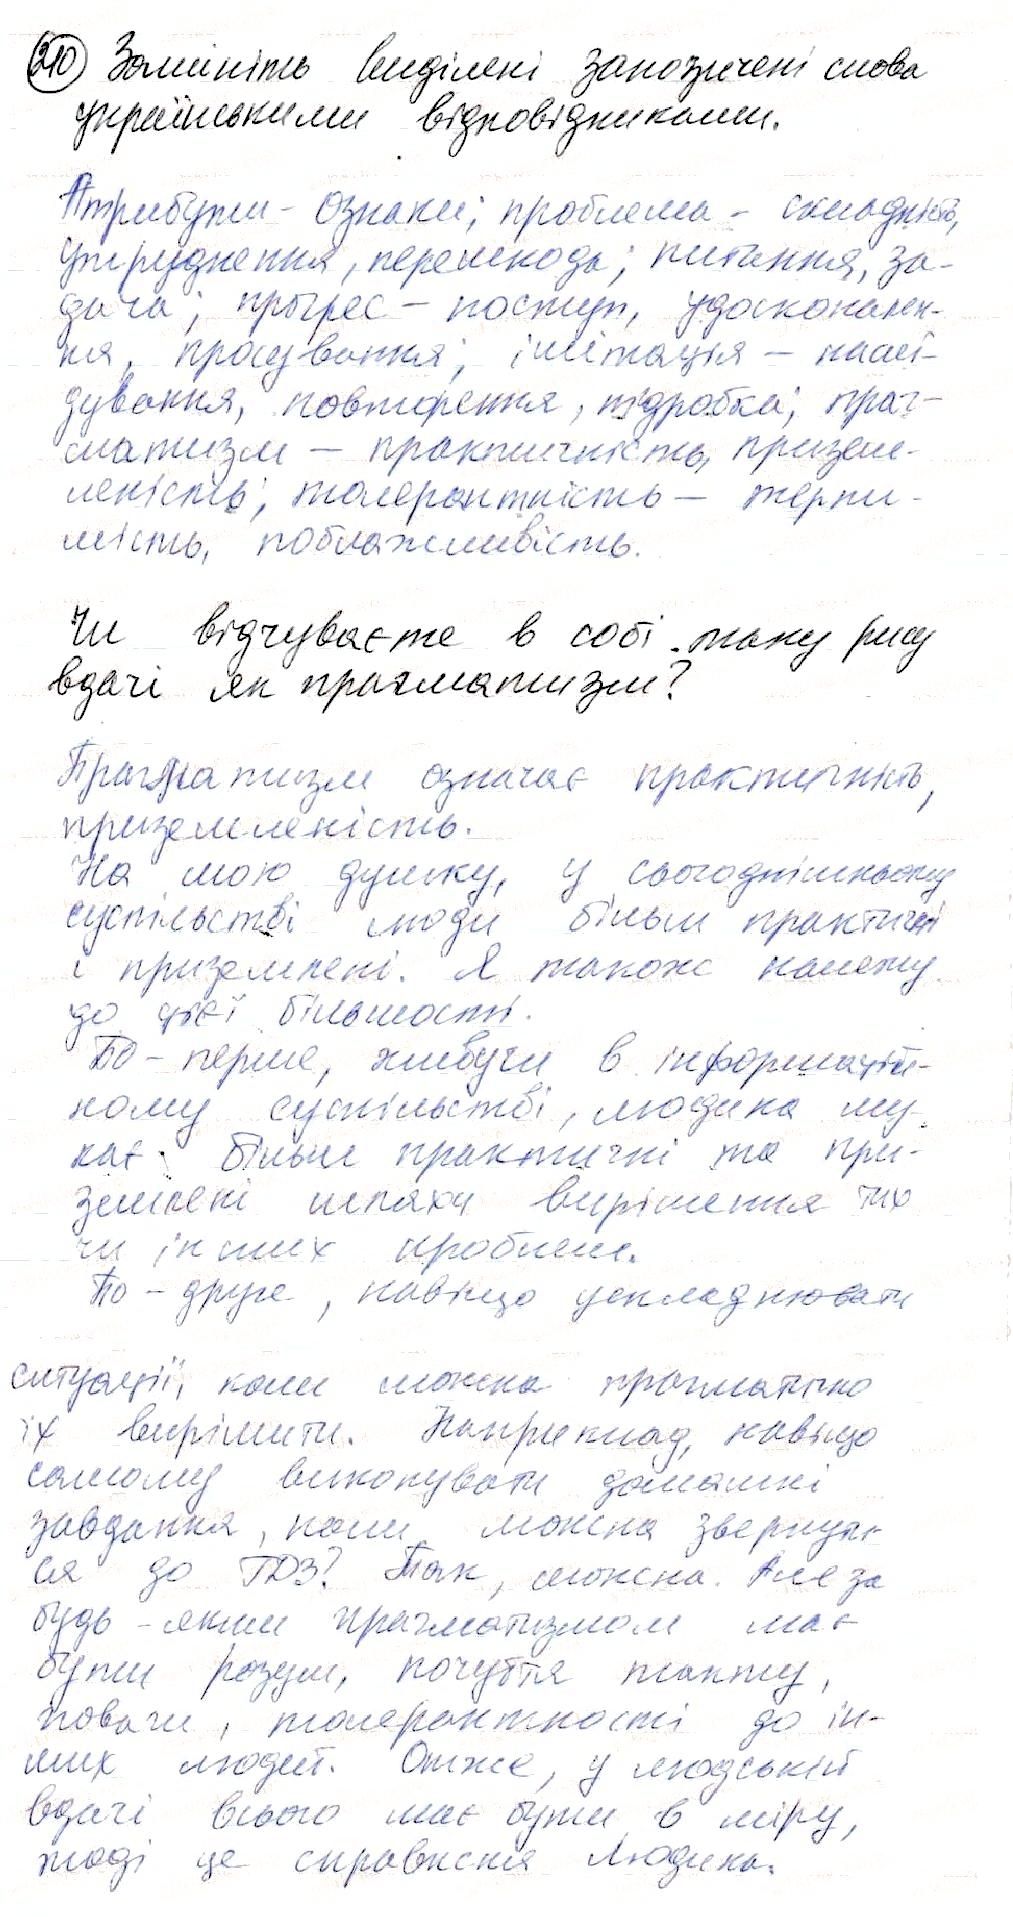 210 Замініть виділені запозичені слова
українськими відповідниками.
Атрибути - ознаки; проблема - складність,
утруднення, перешкода; питання, за-
дача; прогрес - поступ, удосконален-
ня, просування; імітація - наслі-
дування, повторення, підробка; праг-
матизм - практичність, призем-
леність; толерантність - терпи-
мість, поблажливість.
Чи відчуваєте в собі таку рису
вдачі як прагматизм?
Прагматизм означає практичність,
приземленість.
На мою думку, у сьогоднішньому
суспільстві люди більш практичні
і приземлені. Я також належу
до цієї більшості.
По-перше, живучи в інформацій-
ному суспільстві, людина шу-
кає більш практичні та при-
землені шляхи вирішення тих
чи інших проблем.
По-друге, навіщо ускладнювати
ситуації, коли можна прагматично
їх вирішити. Наприклад, навіщо
самому виконувати домашні
завдання, коли можна звернути-
ся до ГДЗ? Так, можна. Але за
будь-яким прагматизмом має
бути розум, почуття такту,
поваги, толерантності до ін-
ших людей. Отже, у людській
вдачі всього має бути в міру,
тоді це справжня Людина.